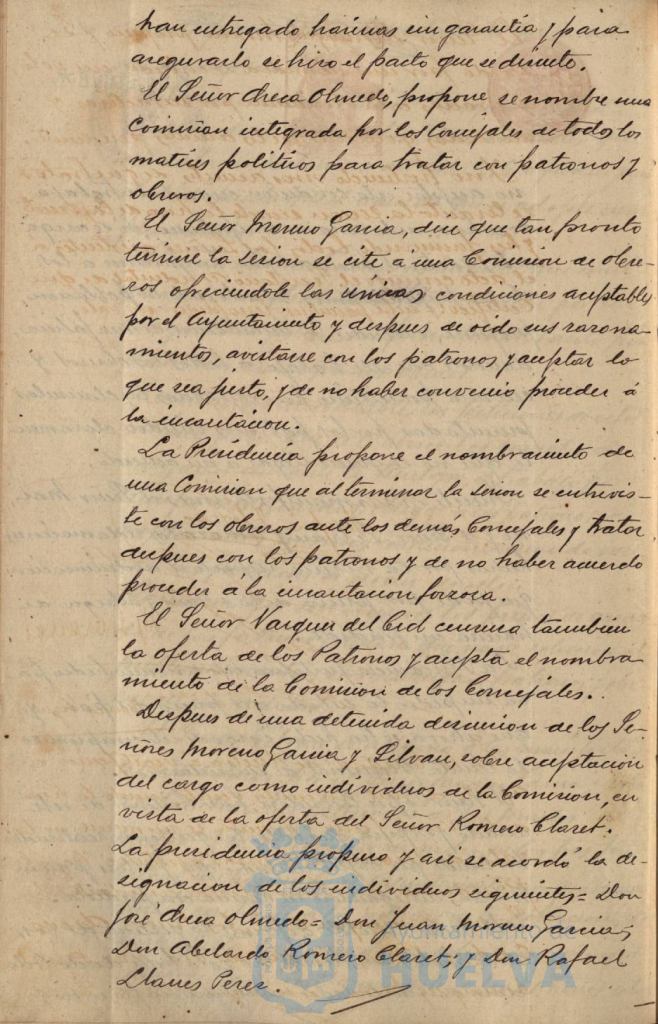 han entregado harinas sin garantía y para
asegurarlo se hizo el pacto que se discute.
El Señor Checa Olmedo, propone se nombre una
Comision integrada por los Concejales de todos los
matices politicos para tratar con patronos y
obreros.
El Señor Moreno Garcia, dice que tan pronto
termine la sesion se cite á una Comision de obre-
ros ofreciendole las únicas condiciones aceptables
por el Ayuntamiento y despues de oido sus razona-
mientos, avistarse con los patronos y aceptar lo
que sea justo, y de no haber convenio proceder á
la incautacion.
La Presidencia propone el nombramiento de
una Comision que al terminar la sesion se entrevis-
te con los obreros ante los demás Concejales y tratar
despues con los patronos y de no haber acuerdo
proceder á la incautacion forzosa.
El Señor Vazquez del Cid censura tambien
la oferta de los Patronos y acepta el nombra-
miento de la Comision de los Concejales.
Despues de una detenida discusion de los Se-
ñores Moreno Garcia y Silvan, sobre aceptación
del cargo como individuos de la Comision, en
vista de la oferta del Señor Romero Claret.
La presidencia propuso y asi se acordó la de-
signacion de los individuos siguientes = Don
José Checa Olmedo = Don Juan Moreno Garcia;
Don Abelardo Romero Claret; y Don Rafael
Llanes Perez.
HUELVA